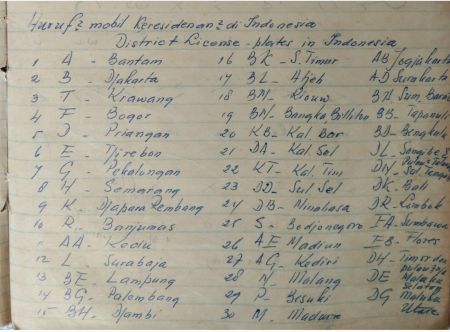 Huruf² mobil Keresidenan² di Indonesia
District License-plates in Indonesia
1 A - Bantam 16 BK - S. Timur AB Jogjakarta
2 B - Djakarta 17 BL - Atjeh AD Surakarta
3 T - Krawang 18 BM - Riouw BA Sum. Barat
4 F - Bogor 19 BN - Bangka Billiton BB - Tapanuli
5 D - Priangan 20 KB - Kal. Bar BD - Bengkulu
6 E - Tjirebon 21 DA - Kal. Sel DL - Sangihe
7 G - Pekalongan 22 KT - Kal. Tim DN - Sul. Tengah
8 H - Semarang 23 DD - Sul Sel DK - Bali
9 K - Djapara Rembang 24 DB - Minahasa DR - Lombok
10 R - Banjumas 25 S - Bodjonegoro EA - Sumbawa
AA - Kedu 26 AE Madiun EB - Flores
12 L - Surabaja 27 AG - Kediri DH - Timor dan
13 BE - Lampung 28 N - Malang DE Maluku Selatan
14 BG - Palembang 29 P - Besuki DG Maluku Utara
15 BH - Djambi 30 M - Madura